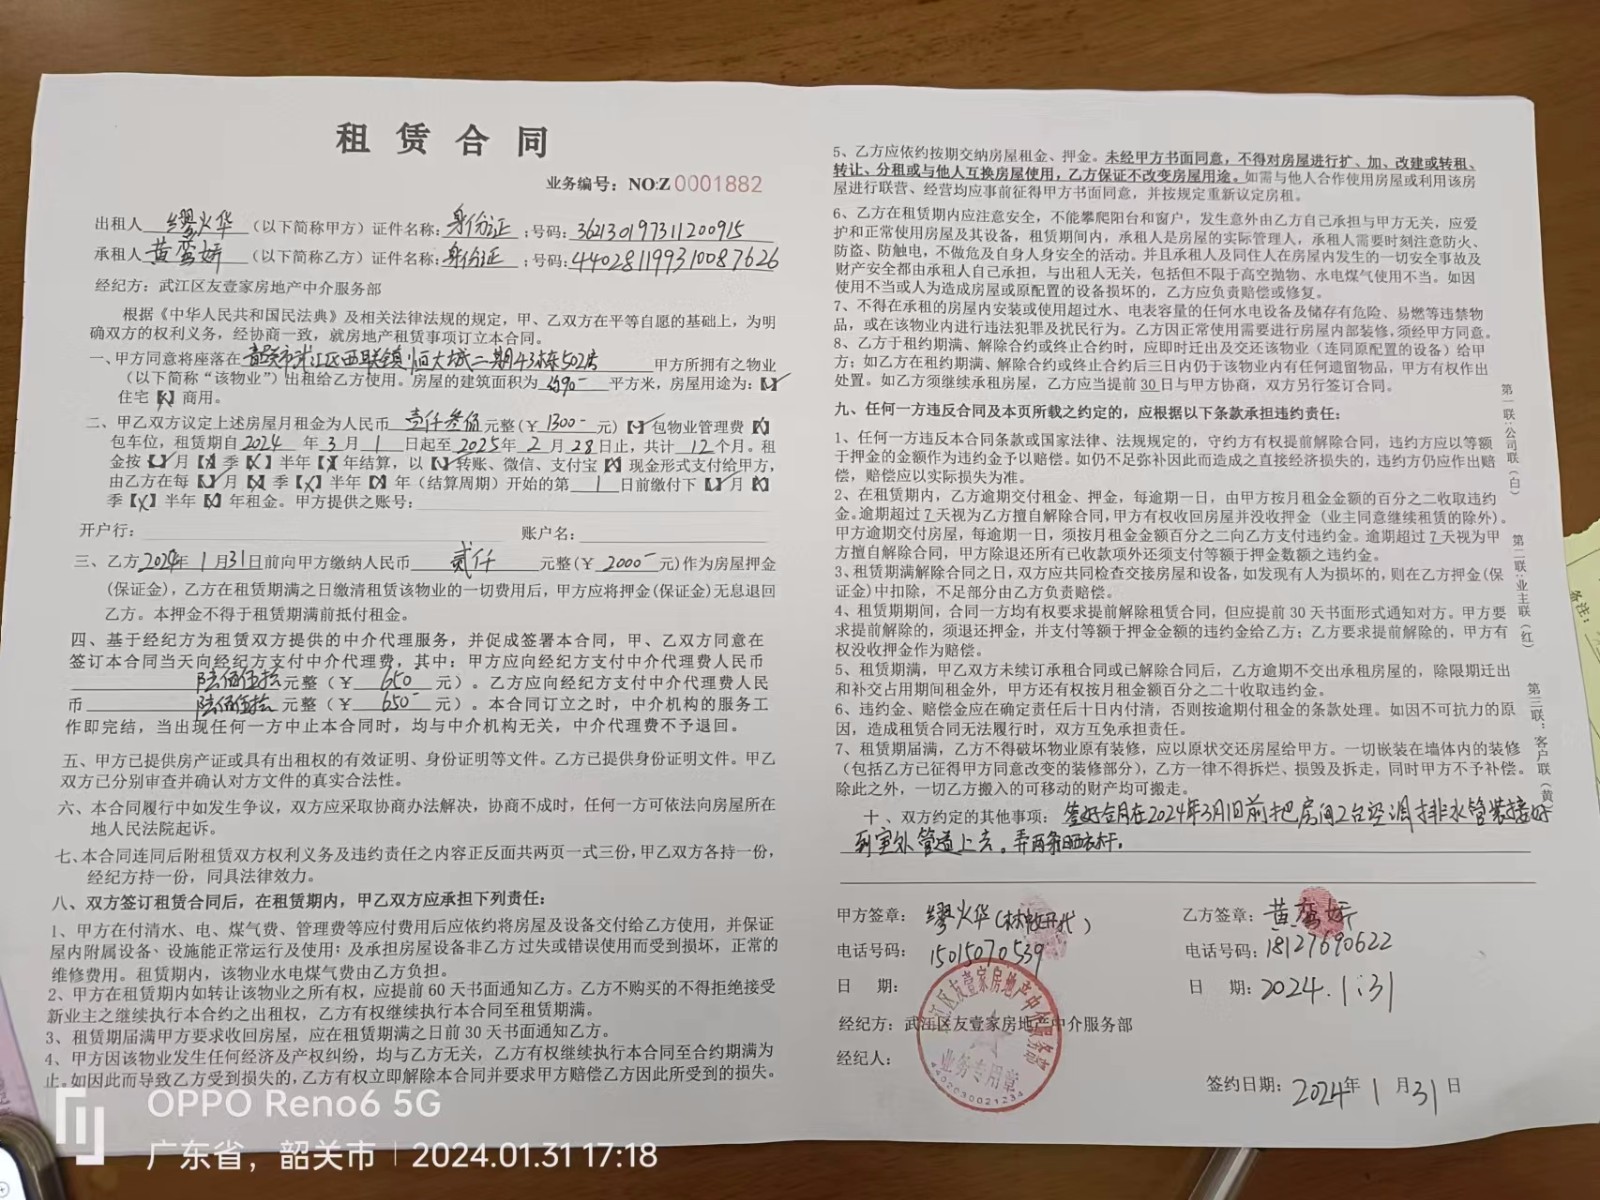 租赁合同
业务编号：NO:Z 0001882
出租人 缪火华 （以下简称甲方）证件名称：身份证；号码：362130197311200915
承租人 黄鸾娇 （以下简称乙方）证件名称：身份证；号码：440281199310087626
经纪方：武江区友壹家房地产中介服务部
根据《中华人民共和国民法典》及相关法律法规的规定，甲、乙双方在平等自愿的基础上，为明
确双方的权利义务，经协商一致，就房地产租赁事项订立本合同。
一、甲方同意将座落在 韶关市武江区西联镇恒大城二期43栋502房 甲方所拥有之物业
（以下简称“该物业”）出租给乙方使用。房屋的建筑面积为 约90 平方米，房屋用途为：【✓】
住宅【✗】商用。
二、甲乙双方议定上述房屋月租金为人民币 壹仟叁佰 元整（¥ 1300 元）【✓】包物业管理费【✗】
包车位，租赁期自 2024 年 3 月 1 日起至 2025 年 2 月 28 日止，共计 12 个月。租
金按【✓】月【✗】季【✗】半年【✗】年结算，以【✓】转账、微信、支付宝【✗】现金形式支付给甲方，
由乙方在每【✓】月【✗】季【✗】半年【✗】年（结算周期）开始的第 1 日前缴付下【✓】月【✗】
季【✗】半年【✗】年租金。甲方提供之账号：
开户行： 账户名：
三、乙方 2024 年 1 月 31 日前向甲方缴纳人民币 贰仟 元整（¥ 2000 元）作为房屋押金
(保证金)，乙方在租赁期满之日缴清租赁该物业的一切费用后，甲方应将押金(保证金)无息退回
乙方。本押金不得于租赁期满前抵付租金。
四、基于经纪方为租赁双方提供的中介代理服务，并促成签署本合同，甲、乙双方同意在
签订本合同当天向经纪方支付中介代理费，其中：甲方应向经纪方支付中介代理费人民币
陆佰伍拾 元整（¥ 650 元）。乙方应向经纪方支付中介代理费人民
币 陆佰伍拾 元整（¥ 650 元）。本合同订立之时，中介机构的服务工
作即完结，当出现任何一方中止本合同时，均与中介机构无关，中介代理费不予退回。
五、甲方已提供房产证或具有出租权的有效证明、身份证明等文件。乙方已提供身份证明文件。甲乙
双方已分别审查并确认对方文件的真实合法性。
六、本合同履行中如发生争议，双方应采取协商办法解决，协商不成时，任何一方可依法向房屋所在
地人民法院起诉。
七、本合同连同后附租赁双方权利义务及违约责任之内容正反面共两页一式三份，甲乙双方各持一份，
经纪方持一份，同具法律效力。
八、双方签订租赁合同后，在租赁期内，甲乙双方应承担下列责任：
1、甲方在付清水、电、煤气费、管理费等应付费用后应依约将房屋及设备交付给乙方使用，并保证
屋内附属设备、设施能正常运行及使用；及承担房屋设备非乙方过失或错误使用而受到损坏，正常的
维修费用。租赁期内，该物业水电煤气费由乙方负担。
2、甲方在租赁期内如转让该物业之所有权，应提前 60 天书面通知乙方。乙方不购买的不得拒绝接受
新业主之继续执行本合约之出租权，乙方有权继续执行本合同至租赁期满。
3、租赁期届满甲方要求收回房屋，应在租赁期满之日前 30 天书面通知乙方。
4、甲方因该物业发生任何经济及产权纠纷，均与乙方无关，乙方有权继续执行本合同至合约期满为
止。如因此而导致乙方受到损失的，乙方有权立即解除本合同并要求甲方赔偿乙方因此所受到的损失。
5、乙方应依约按期交纳房屋租金、押金。未经甲方书面同意，不得对房屋进行扩、加、改建或转租、
转让、分租或与他人互换房屋使用，乙方保证不改变房屋用途。如需与他人合作使用房屋或利用该房
屋进行联营、经营均应事前征得甲方书面同意，并按规定重新议定房租。
6、乙方在租赁期内应注意安全，不能攀爬阳台和窗户，发生意外由乙方自己承担与甲方无关，应爱
护和正常使用房屋及其设备，租赁期间内，承租人是房屋的实际管理人，承租人需要时刻注意防火、
防盗、防触电，不做危及自身人身安全的活动。并且承租人及同住人在房屋内发生的一切安全事故及
财产安全都由承租人自己承担，与出租人无关，包括但不限于高空抛物、水电煤气使用不当。如因
使用不当或人为造成房屋或原配置的设备损坏的，乙方应负责赔偿或修复。
7、不得在承租的房屋内安装或使用超过水、电表容量的任何水电设备及储存有危险、易燃等违禁物
品，或在该物业内进行违法犯罪及扰民行为。乙方因正常使用需要进行房屋内部装修，须经甲方同意。
8、乙方于租约期满、解除合约或终止合约时，应即时迁出及交还该物业（连同原配置的设备）给甲
方；如乙方在租约期满、解除合约或终止合约后三日内仍于该物业内有任何遗留物品，甲方有权作出
处置。如乙方须继续承租房屋，乙方应当提前 30 日与甲方协商，双方另行签订合同。
九、任何一方违反合同及本页所载之约定的，应根据以下条款承担违约责任：
1、任何一方违反本合同条款或国家法律、法规规定的，守约方有权提前解除合同，违约方应以等额
于押金的金额作为违约金予以赔偿。如仍不足弥补因此而造成之直接经济损失的，违约方仍应作出赔
偿，赔偿应以实际损失为准。
2、在租赁期内，乙方逾期交付租金、押金，每逾期一日，由甲方按月租金金额的百分之二收取违约
金。逾期超过 7 天视为乙方擅自解除合同，甲方有权收回房屋并没收押金（业主同意继续租赁的除外）。
甲方逾期交付房屋，每逾期一日，须按月租金金额百分之二向乙方支付违约金。逾期超过 7 天视为甲
方擅自解除合同，甲方除退还所有已收款项外还须支付等额于押金数额之违约金。
3、租赁期满解除合同之日，双方应共同检查交接房屋和设备，如发现有人为损坏的，则在乙方押金(保
证金)中扣除，不足部分由乙方负责赔偿。
4、租赁期期间，合同一方均有权要求提前解除租赁合同，但应提前 30 天书面形式通知对方。甲方要
求提前解除的，须退还押金，并支付等额于押金金额的违约金给乙方；乙方要求提前解除的，甲方有
权没收押金作为赔偿。
5、租赁期满，甲乙双方未续订承租合同或已解除合同后，乙方逾期不交出承租房屋的，除限期迁出
和补交占用期间租金外，甲方还有权按月租金额百分之二十收取违约金。
6、违约金、赔偿金应在确定责任后十日内付清，否则按逾期付租金的条款处理。如因不可抗力的原
因，造成租赁合同无法履行时，双方互免承担责任。
7、租赁期届满，乙方不得破坏物业原有装修，应以原状交还房屋给甲方。一切嵌装在墙体内的装修
（包括乙方已征得甲方同意改变的装修部分），乙方一律不得拆烂、损毁及拆走，同时甲方不予补偿。
除此之外，一切乙方搬入的可移动的财产均可搬走。
十、双方约定的其他事项：签好合同在2024年3月1日前把房间2台空调排水管装接好
到室外管道上去。弄两条晒衣杆。
甲方签章：缪火华 乙方签章：黄鸾娇
电话号码：15015070539 电话号码：18127690622
日 期： 日 期：2024.1.31
经纪方：武江区友壹家房地产中介服务部
经纪人：
签约日期：2024年 1 月 31 日
第一联：公司联（白）
第二联：业主联（红）
第三联：客户联（黄）
武江区友壹家房地产中介服务部
业务专用章
备注：
OPPO Reno6 5G
广东省，韶关市 | 2024.01.31 17:18